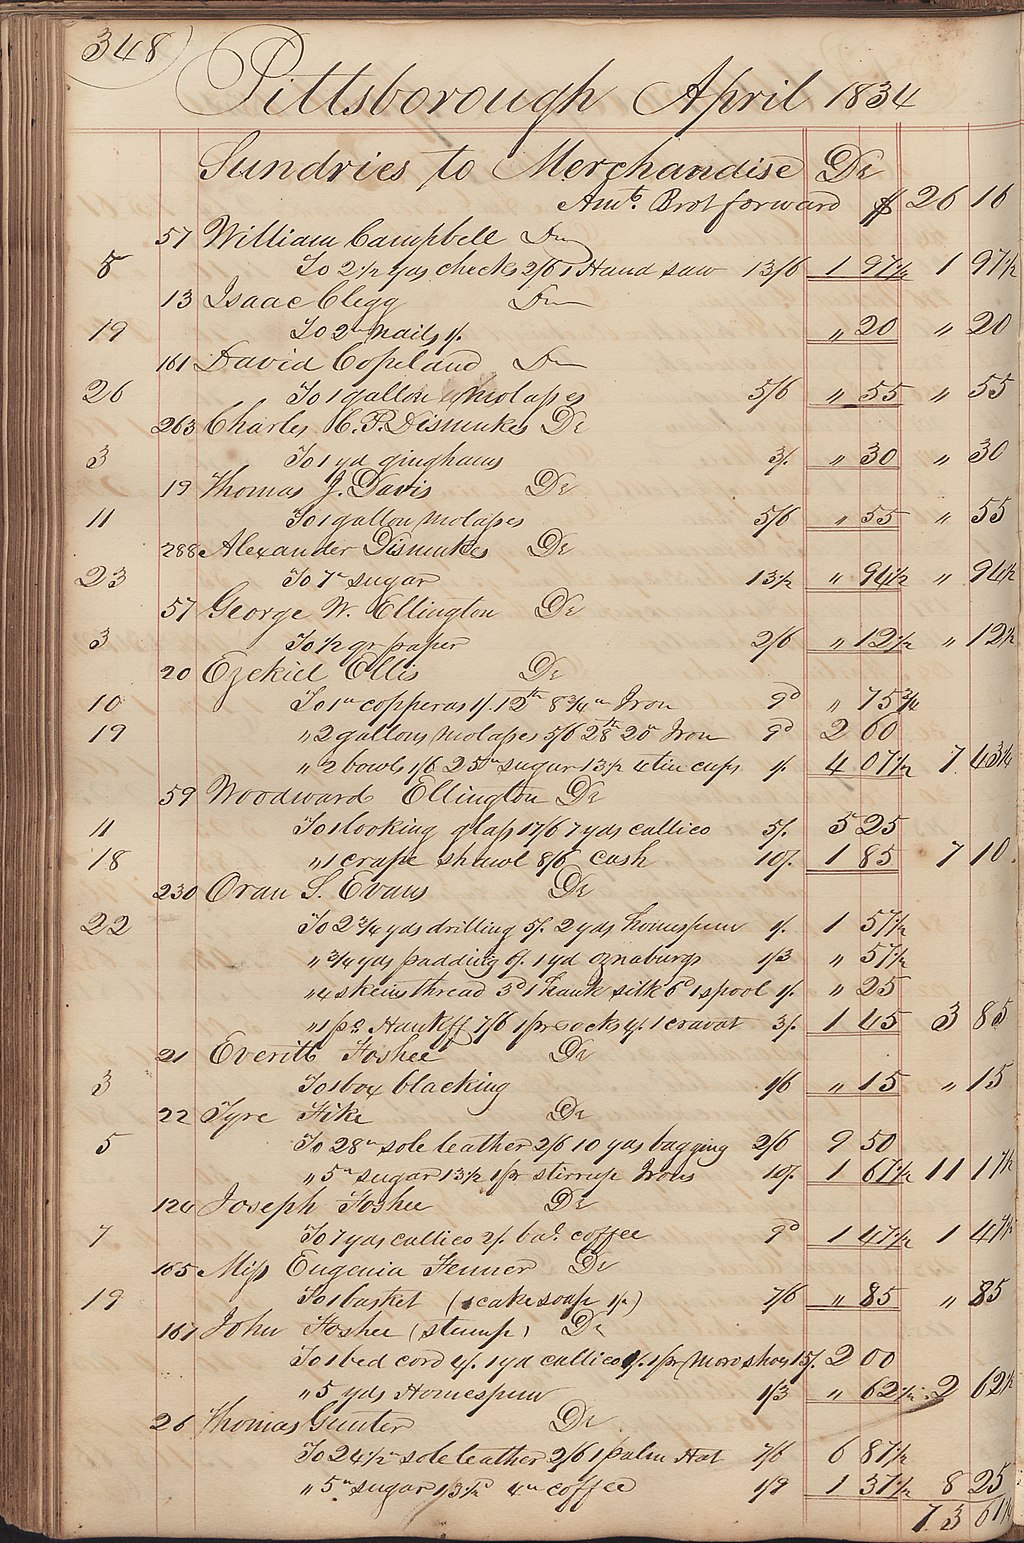 348
Pittsborough April 1834
Sundries to Merchandise Dr
Amt. Brot forward $ 26 16
57 William Campbell Dr
8 To 2 1/2 yds checks 2/6 1 Hand saw 13/6 1 97 1/2 1 97 1/2
13 Isaac Clegg Dr
19 To 2 " nails 1/. " 20 " 20
161 David Copeland Dr
26 To 1 gallon molasses 5/6 " 55 " 55
263 Charles H. P. Dismukes Dr
3 To 1 yd ginghams 3/. " 30 " 30
19 Thomas J. Davis Dr
11 To 1 gallon molasses 5/6 " 55 " 55
288 Alexander Dismukes Dr
23 To 7 " sugar 13 1/2 " 94 1/2 " 94 1/2
57 George W. Ellington Dr
3 To 1/2 qr paper 2/6 " 12 1/2 " 12 1/2
20 Ezekiel Ellis Dr
10 To 1 " copperas 1/. 12th 8 3/4 " Iron 9d " 75 3/4
19 " 2 gallons molasses 5/6 28th 20 " Iron 9d 2 60
" 2 bowls 1/6 25th " sugar 13 1/2 4 tin cups 1/. 4 07 1/2 7 43 1/4
59 Woodward Ellington Dr
11 To 1 looking glass 17/6 7 yds callico 5/. 5 25
18 " 1 crape shawl 8/6 cash 10/. 1 85 7 10
230 Oran S. Evans Dr
22 To 2 3/4 yds drilling 5/. 2 yds homespun 1/. 1 57 1/2
" 3/4 yds padding 6/. 1 yd oznaburgs 1/3 " 57 1/2
" 4 skeins thread 3d 1 hank silk 6d 1 spool 1/. " 25
" 1 ps Hankff 7/6 1 pr socks 4/. 1 cravat 3/. 1 45 3 85
21 Everitt Foshee Dr
3 To 1 box blacking 1/6 " 15 " 15
22 Tyre Fike Dr
5 To 28 " sole leather 2/6 10 yds bagging 2/6 9 50
" 5 " sugar 13 1/2 1 pr stirrup Irons 10/. 1 67 1/2 11 17 1/2
124 Joseph Foshee Dr
7 To 7 yds callico 2/. bal. coffee 9d 1 47 1/2 1 47 1/2
165 Miss Eugenia Fenner Dr
19 To 1 basket (1 cake soap 1/.) 7/6 " 85 " 85
167 John Foshee (stump) Dr
To 1 bed cord 4/. 1 yd callico 1/. 1 pr Moro shoes 15/. 2 00
" 5 yds Homespun 1/3 " 62 1/2 2 62 1/2
26 Thomas Gunter Dr
To 24 1/2 " sole leather 2/6 1 palm Hat 7/6 6 87 1/2
" 5 " sugar 13 1/2 4 " coffee 1/9 1 37 1/2 8 25
73 61 1/4